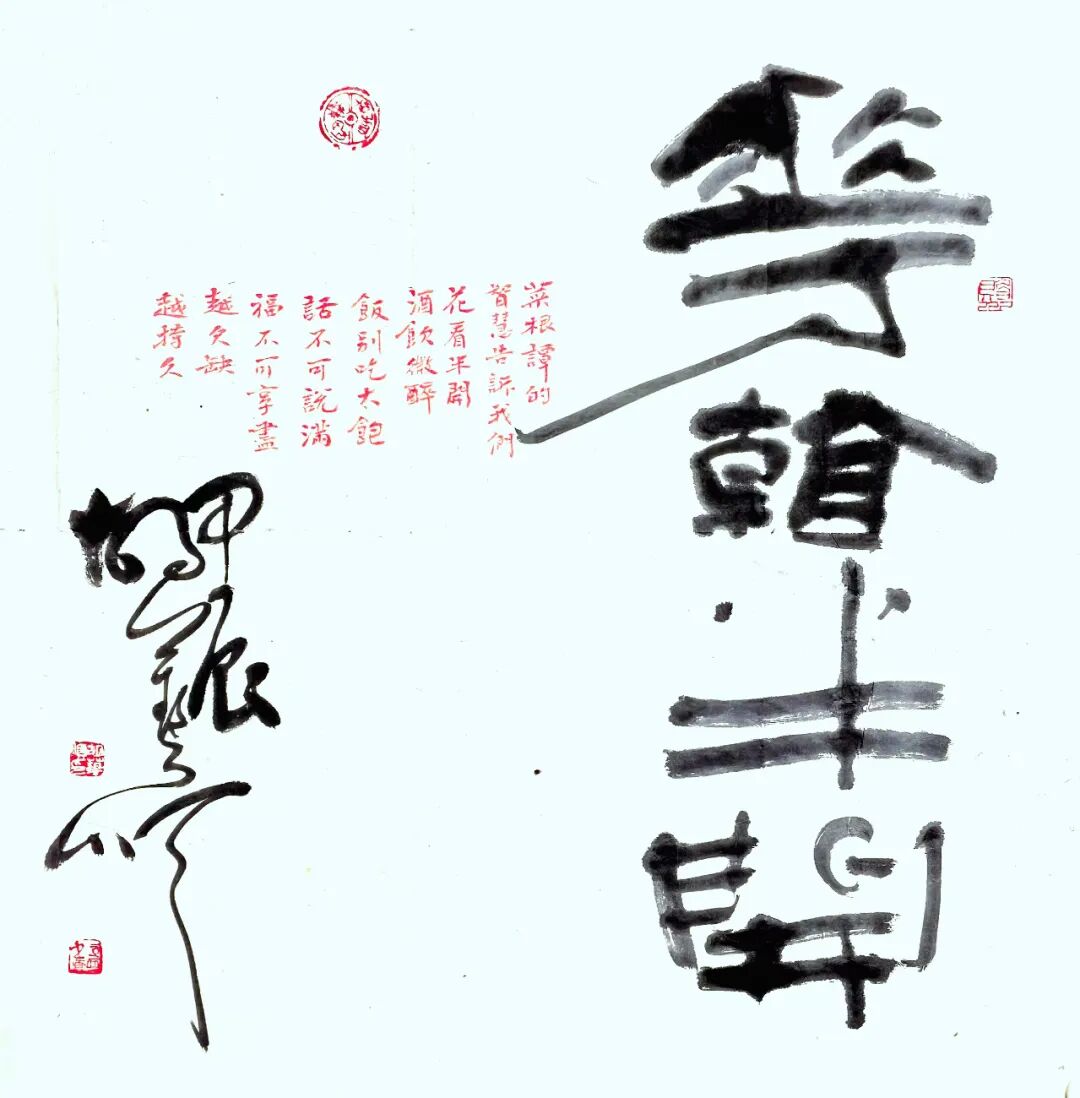 花看半開
菜根譚的
智慧告訴我們
花看半開
酒飲微醉
飯別吃太飽
話不可說滿
福不可享盡
越欠缺
越持久